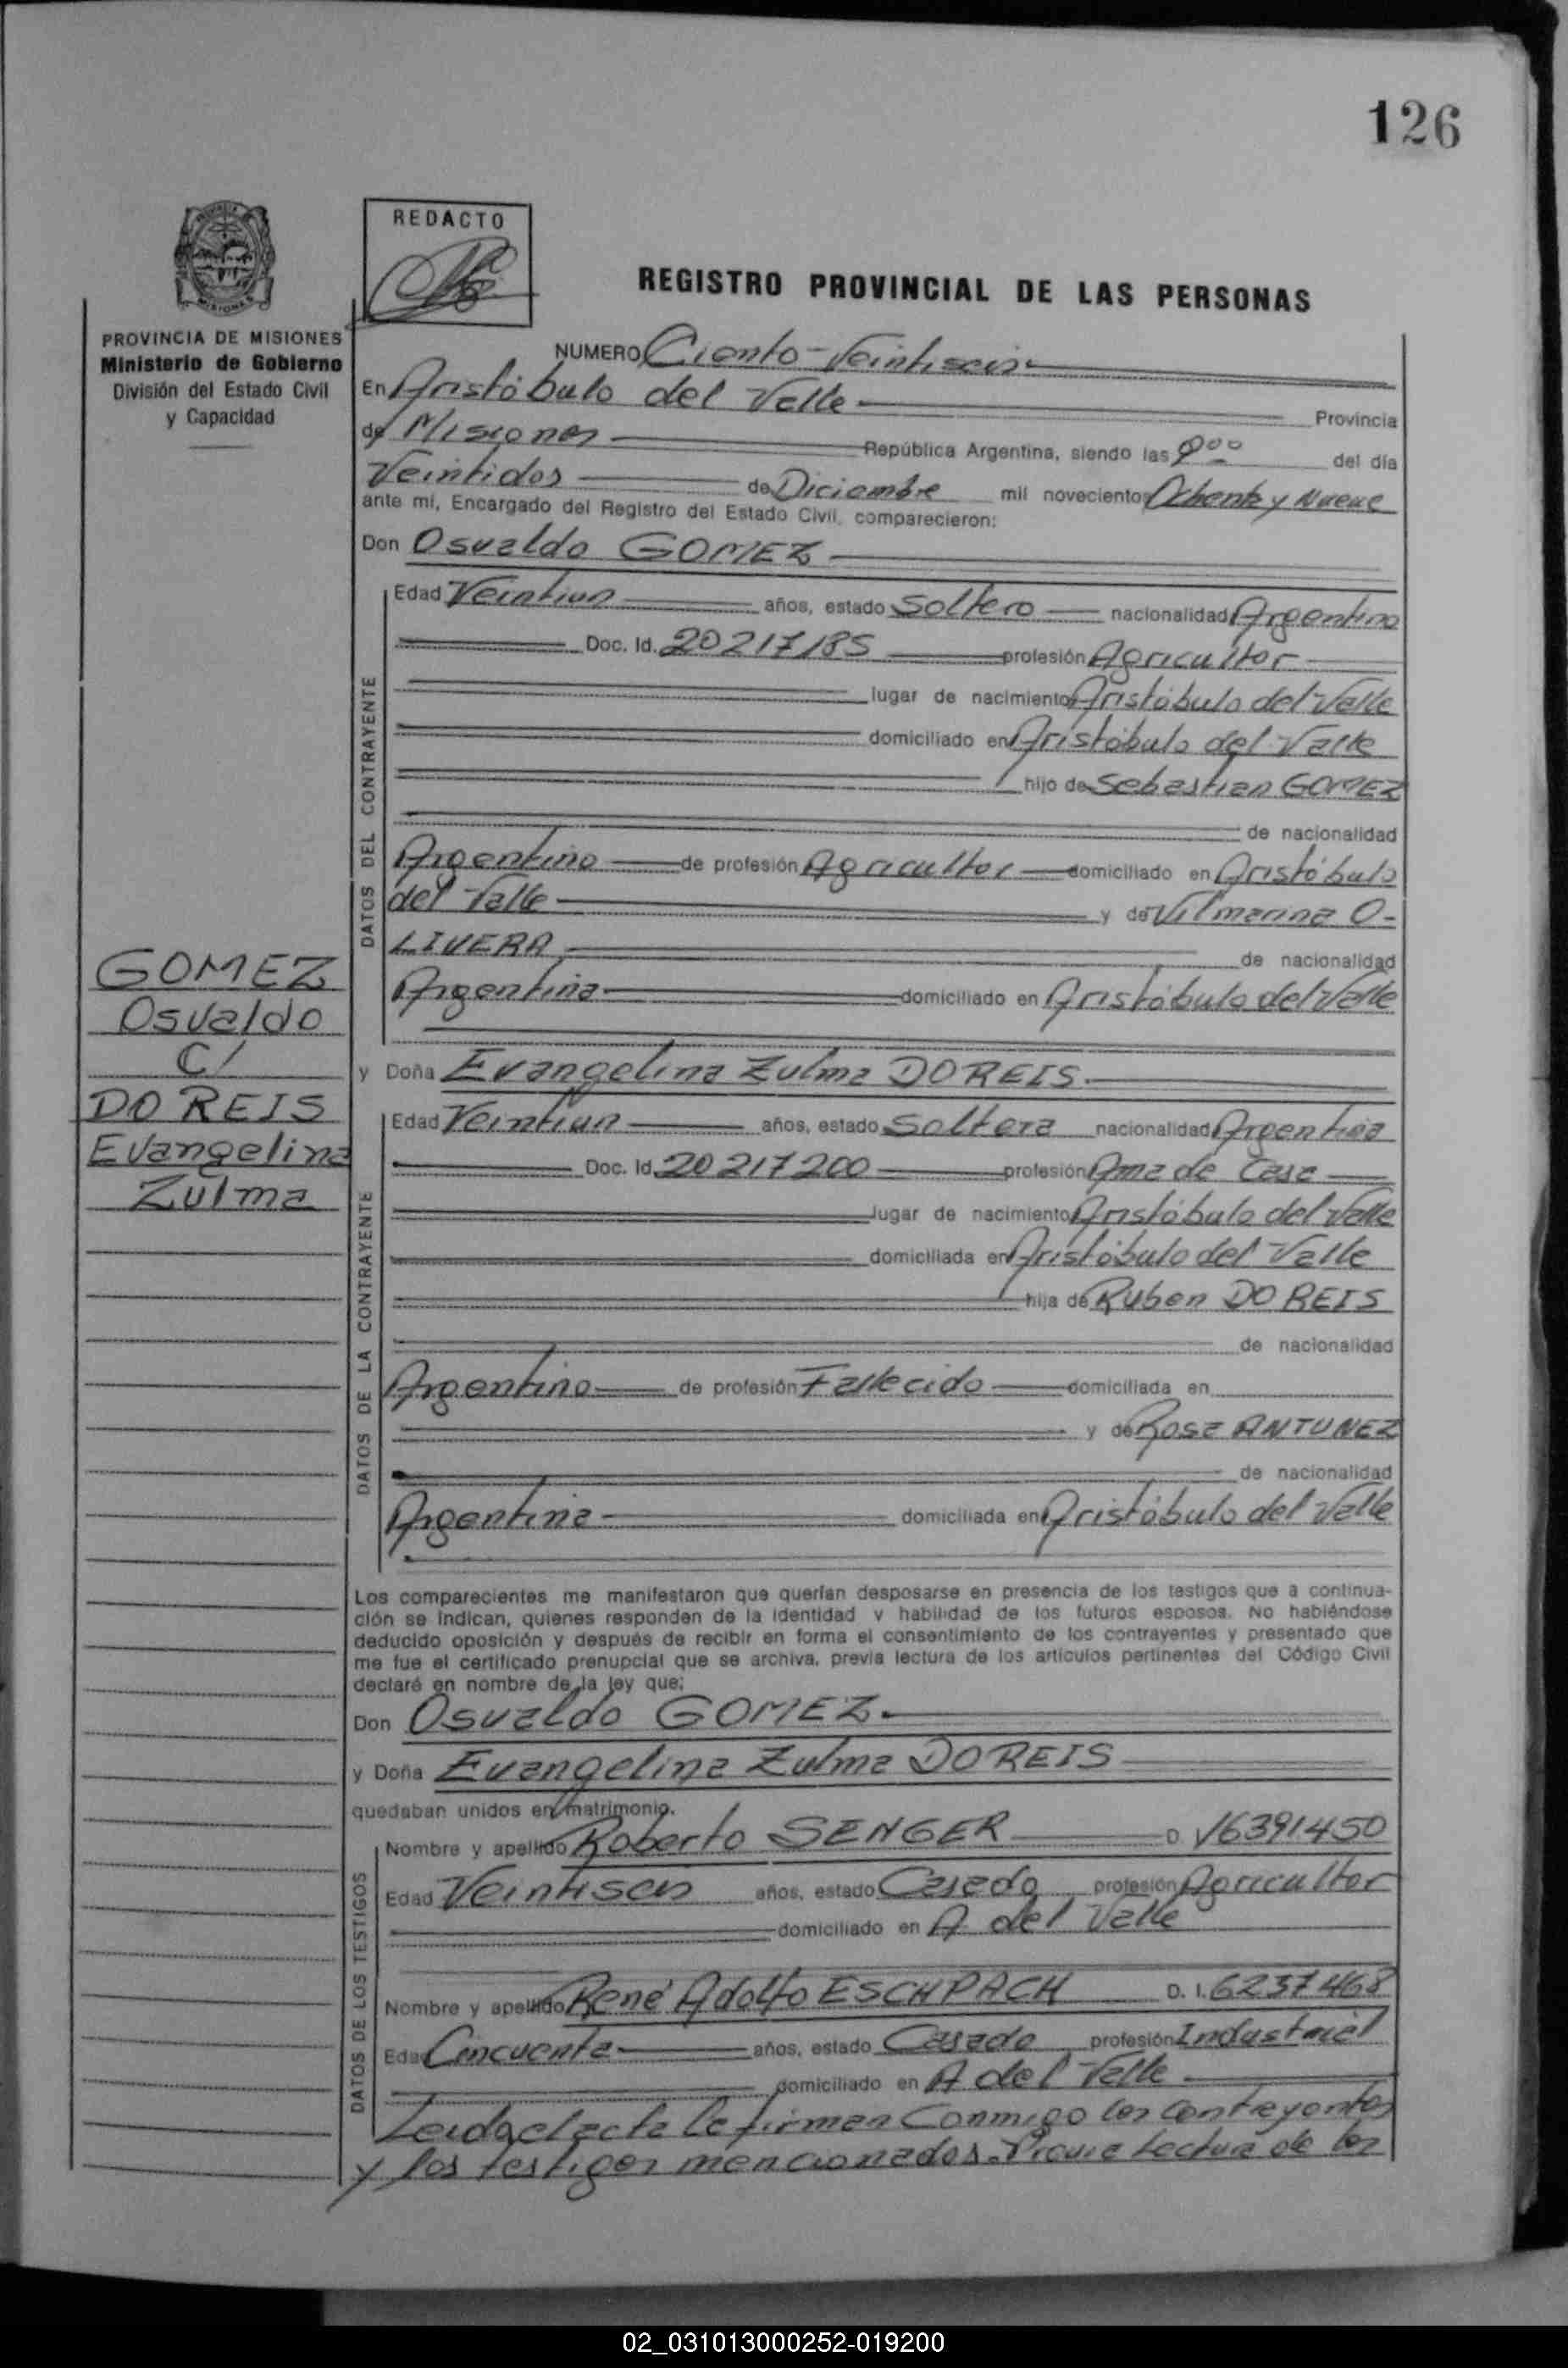 126
REDACTO
REGISTRO PROVINCIAL DE LAS PERSONAS
PROVINCIA DE MISIONES
Ministerio de Gobierno
División del Estado Civil
y Capacidad
NUMERO Ciento Veintiseis
En Aristóbulo del Valle Provincia
de Misiones República Argentina, siendo las 9°° del día
Veintidos de Diciembre mil novecientos Ochenta y Nueve
ante mí, Encargado del Registro del Estado Civil, comparecieron:
Don Osvaldo GOMEZ
DATOS DEL CONTRAYENTE
Edad Veintiun años, estado Soltero nacionalidad Argentino
Doc. Id. 20217185 profesión Agricultor
lugar de nacimiento Aristóbulo del Valle
domiciliado en Aristóbulo del Valle
hijo de Sebastian GOMEZ
de nacionalidad
Argentino de profesión Agricultor domiciliado en Aristóbulo
del Valle y de Vilmarina O-
LIVERA de nacionalidad
Argentina domiciliado en Aristóbulo del Valle
GOMEZ
Osvaldo
C/
DO REIS
Evangelina
Zulma
y Doña Evangelina Zulma DO REIS
DATOS DE LA CONTRAYENTE
Edad Veintiun años, estado Soltera nacionalidad Argentina
Doc. Id. 20217200 profesión Ama de Casa
lugar de nacimiento Aristóbulo del Valle
domiciliada en Aristóbulo del Valle
hija de Ruben DO REIS
de nacionalidad
Argentino de profesión Fallecido domiciliada en
y de Rosa ANTUNEZ
de nacionalidad
Argentina domiciliada en Aristóbulo del Valle
Los comparecientes me manifestaron que querían desposarse en presencia de los testigos que a continua-
ción se indican, quienes responden de la identidad y habilidad de los futuros esposos. No habiéndose
deducido oposición y después de recibir en forma el consentimiento de los contrayentes y presentado que
me fue el certificado prenupcial que se archiva, previa lectura de los artículos pertinentes del Código Civil
declaré en nombre de la ley que:
Don Osvaldo GOMEZ
y Doña Evangelina Zulma DO REIS
quedaban unidos en matrimonio.
DATOS DE LOS TESTIGOS
Nombre y apellido Roberto SENGER D. 16391450
Edad Veintiseis años, estado Casado profesión Agricultor
domiciliado en A. del Valle
Nombre y apellido René Adolfo ESCHPACH D. I. 6237468
Edad Cincuenta años, estado Casado profesión Industrial
domiciliado en A del Valle
Leida el acta la firman Conmigo los contrayentes
y los testigos mencionados. Previa Lectura de los
02_031013000252-019200